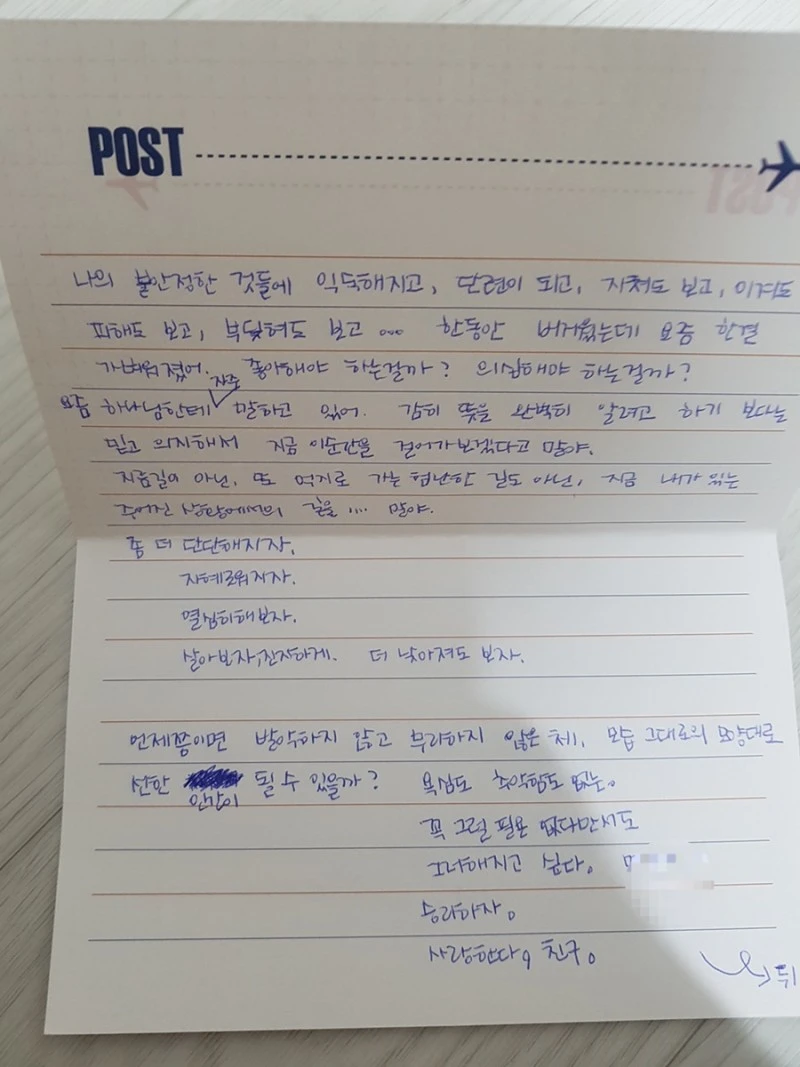 POST
나의 불안정한 것들에 익숙해지고, 단련이 되고, 지쳐도 보고, 이겨도
피해도 보고, 부딪혀도 보고 ... 한동안 버거웠는데 요즘 한결
가벼워졌어. 좋아해야 하는걸까? 의심해야 하는걸까?
요즘 하나님한테 자주 말하고 있어. 감히 뜻을 완벽히 알려고 하기 보다는
믿고 의지해서 지금 이순간을 걸어가보겠다고 말야.
지름길이 아닌, 또 억지로 가는 험난한 길도 아닌, 지금 내가 있는
주어진 상황에서의 길을 .... 말야.
좀 더 단단해지자.
지혜로워지자.
열심히해보자.
살아보자, 잔잔하게. 더 낮아져도 보자.
언제쯤이면 발악하지 않고 무리하지 않은 체, 모습 그대로의 모양대로
선한 인간이 될 수 있을까? 욕심도 추악함도 없는.
꼭 그럴 필욘 없다만서도
그녀해지고 싶다.
승리하자.
사랑한다, 친구.
뒤